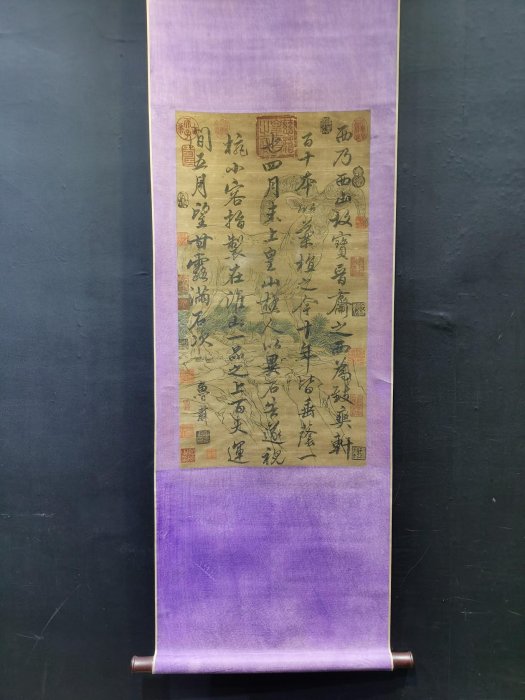 西乃西山故寶晉齋之西為致爽軒
百十本以藥植之今十年皆垂蔭一
也四月末上皇山樵人以異石告遂視
椀小容指製在淮山一品之上百夫運
間五月望甘露滿石次